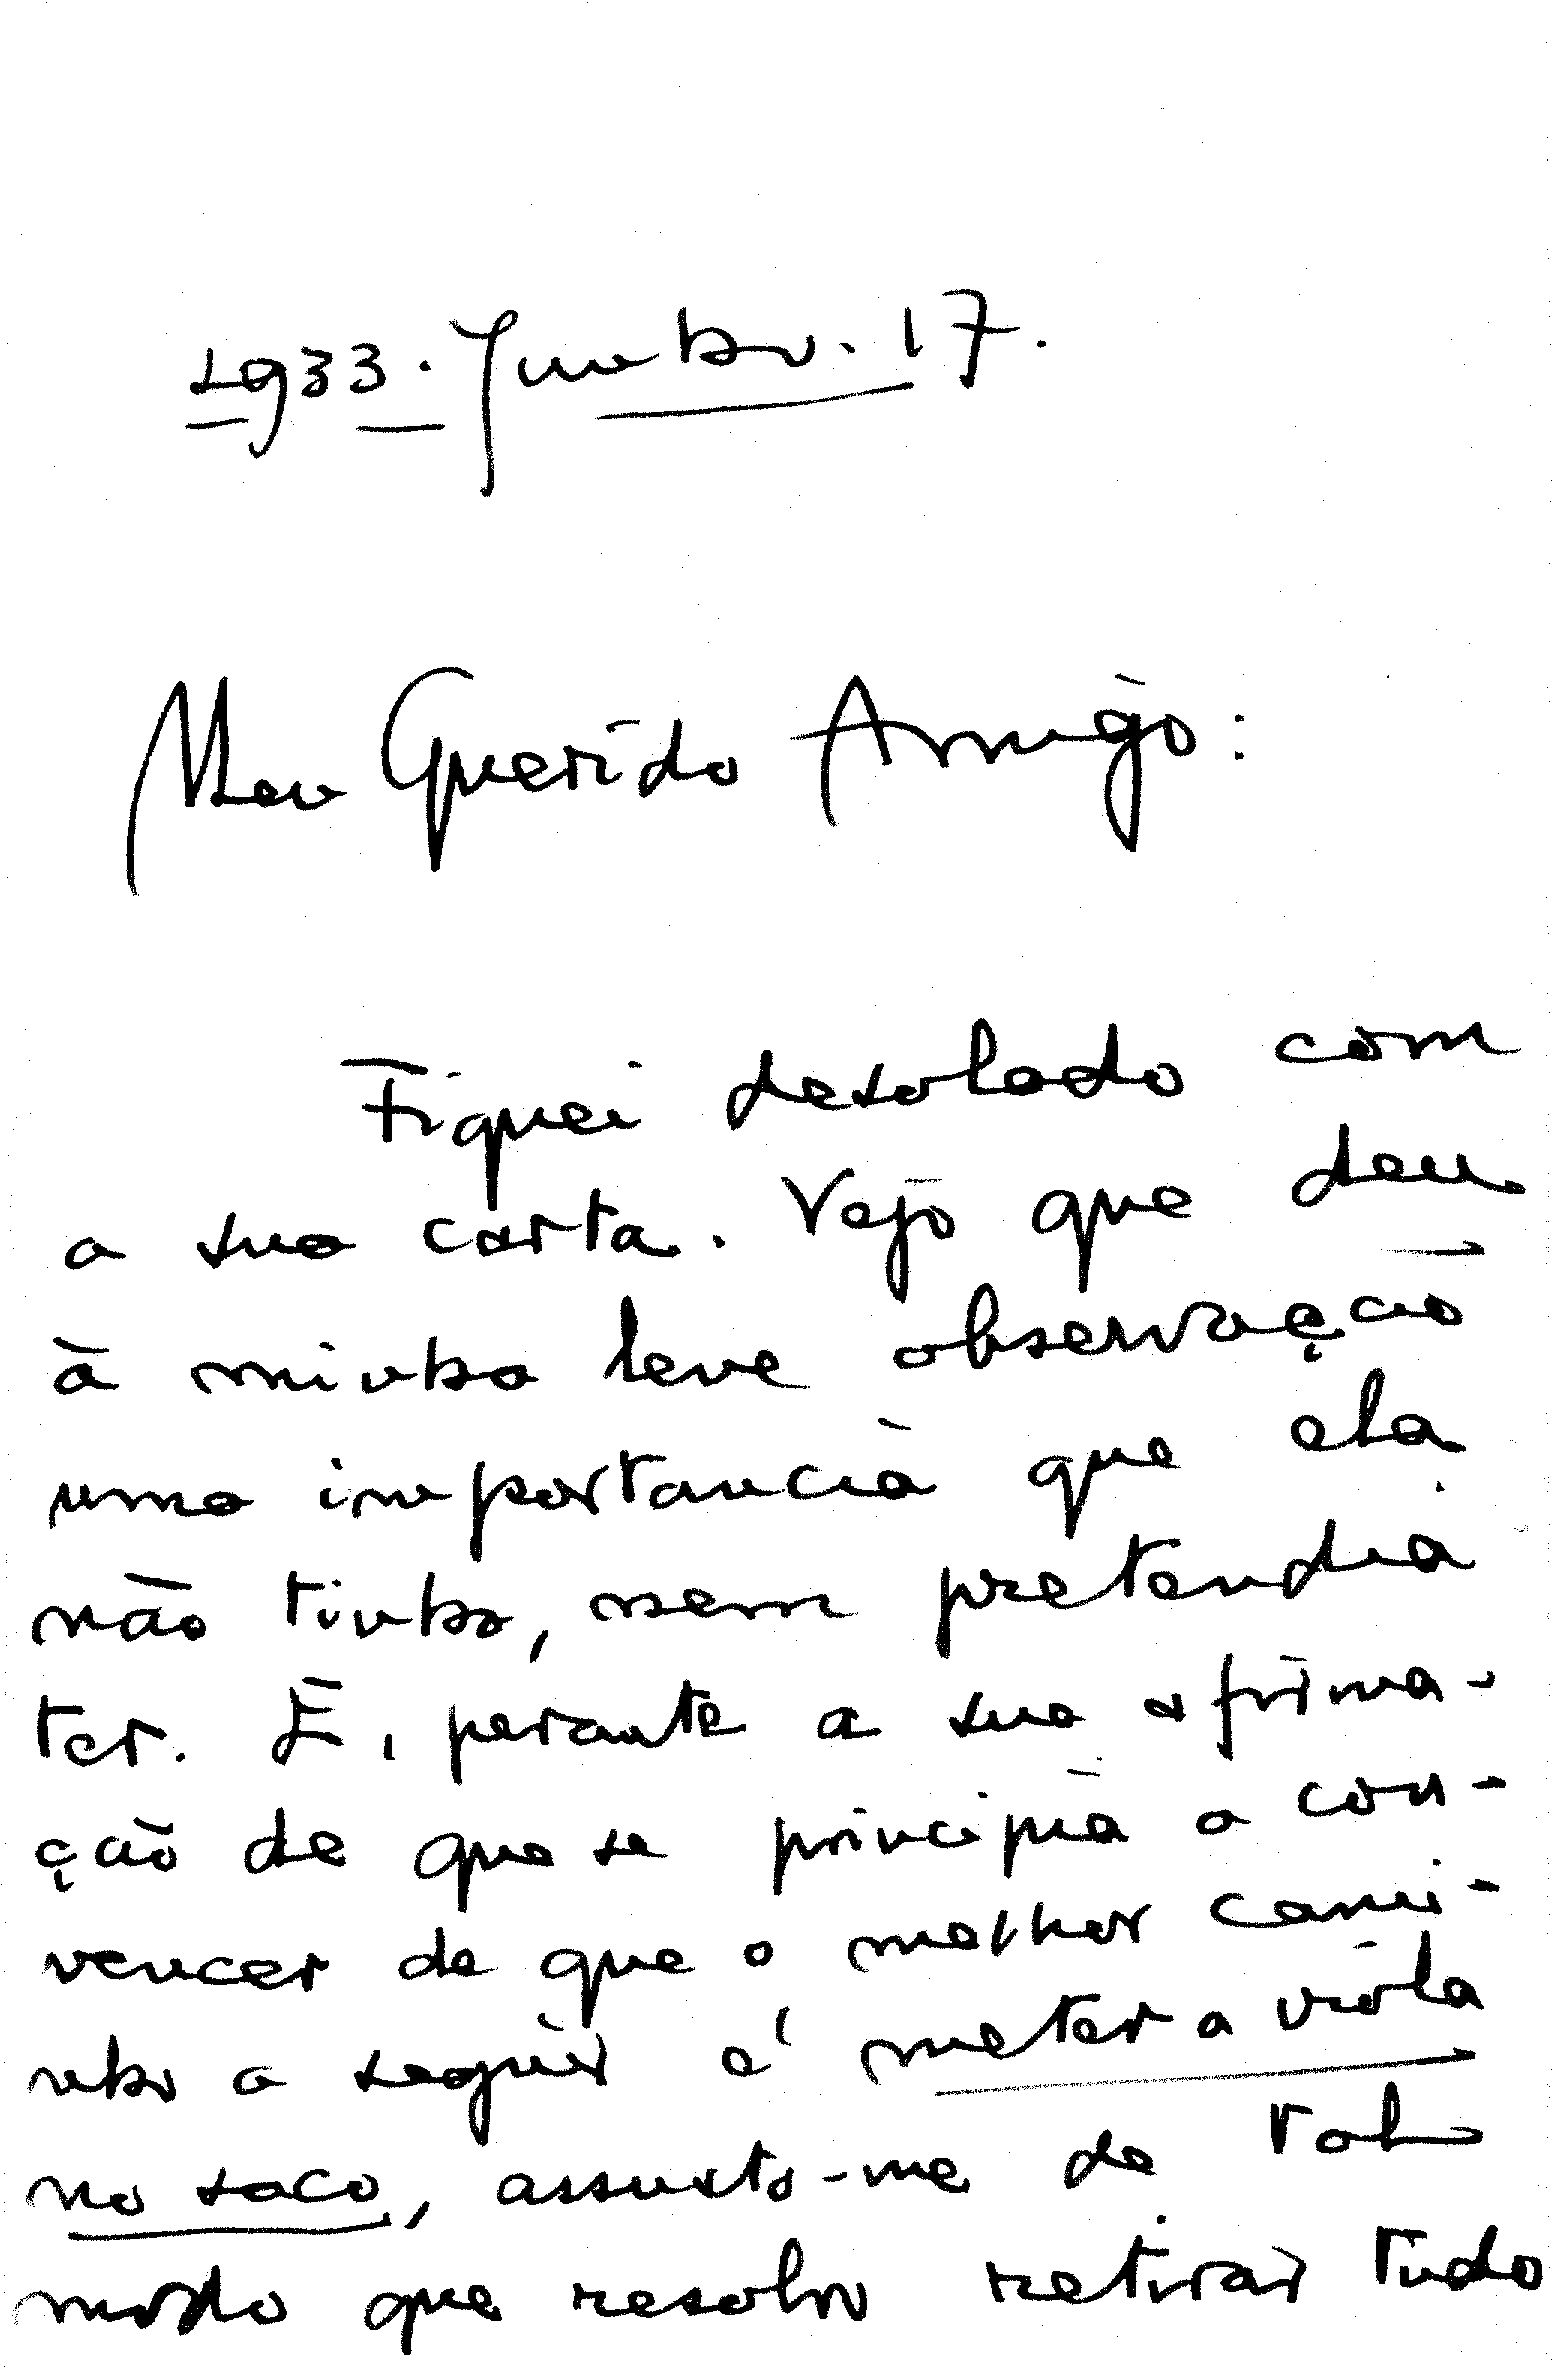 1933. Junho. 17.
Meu Querido Amigo:
Fiquei desolado com
a sua carta. Vejo que deu
à minha leve observação
uma importancia que ela
não tinha, nem pretendia
ter. E, perante a sua afirma-
ção de que se principia a con-
vencer de que o melhor cami-
nho a seguir é meter a viola
no saco, assusto-me de tal
modo que resolvo retirar tudo